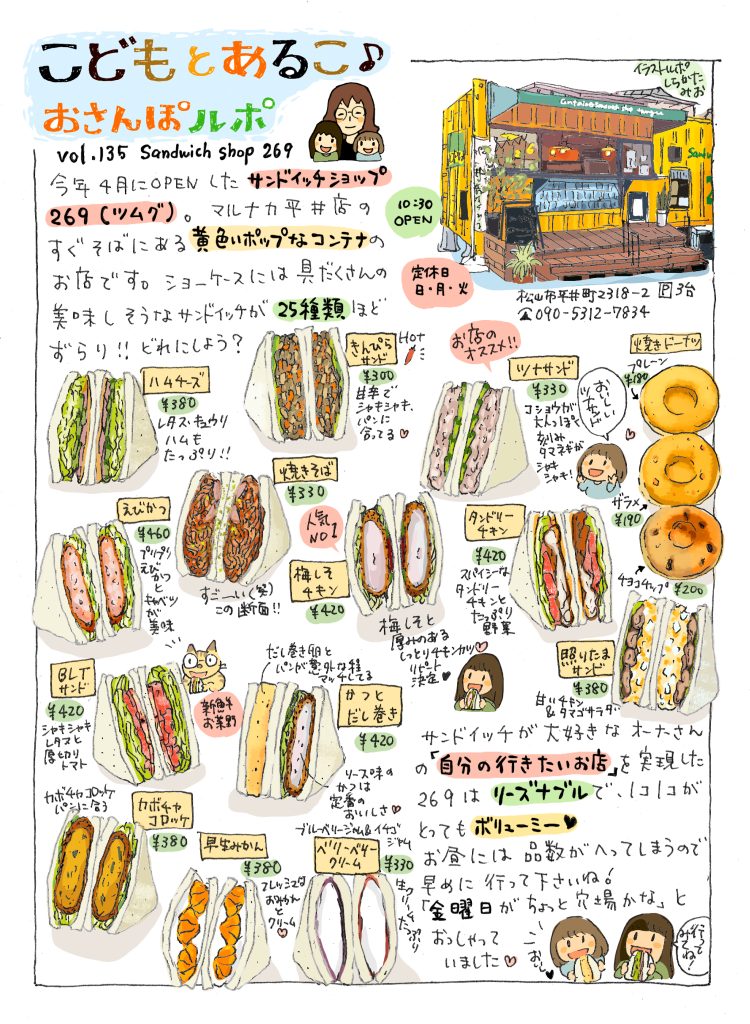 こどもとあるこ♪
おさんぽルポ
vol.135 Sandwich shop 269
今年4月にOPENした サンドイッチショップ
269(ツムグ)。マルナカ平井店の
すぐそばにある黄色いポップなコンテナの
お店です。ショーケースには具だくさんの
美味しそうなサンドイッチが25種類ほど
ずらり!!どれにしよう?
イラストルポ
しらかた
みお
10:30
OPEN
定休日
日・月・火
松山市平井町2318-2 P3台
☎090-5312-7834
ハムチーズ
¥380
レタス・キュウリ
ハムも
たっぷり!!
きんぴら
サンド
Hot
¥300
甘辛で
シャキシャキ、
パンに
合ってる♡
お店の
オススメ!!
ツナサンド
¥330
コショウが
大人っぽくて
刻み
タマネギが
シャキ
シャキ!
おいしい
ツナサンド
焼きドーナツ
プレーン
¥180
ザラメ
¥190
チョコチップ
¥200
えびかつ
¥460
プリプリ
えび
かつ
と
キャベツ
が
美味
焼きそば
¥330
すごーい(笑)
この断面!!
人気
NO1
梅しそ
チキン
¥420
梅しそと
厚みのある
しっとりチキンカツ♡
リピート
決定♥
タンドリー
チキン
¥420
スパイシーな
タンドリー
チキンと
たっぷり
野菜
照りたま
サンド
¥380
甘いチキン
&タマゴサラダ
BLT
サンド
¥420
シャキシャキ
レタスと
厚切り
トマト
新鮮
お野菜
だし巻き卵と
パンが意外な程
マッチしてる
かつと
だし巻き
¥420
ソース味の
かつは
定番の
おいしさ♡
カボチャコロッケ
パンに合う
カボチャ
コロッケ
¥380
早生みかん
¥380
フレッシュな
おみかん
と
クリーム♡
ブルーベリージャム&イチゴ
ジャム
ベリーベリー
クリーム
¥330
生クリームたっぷり
サンドイッチが大好きなオーナーさん
の「自分の行きたいお店」を実現した
269はリーズナブルで、1コ1コが
とってもボリューミー♥
お昼には品数がへってしまうので
早めに行って下さいね!
「金曜日がちょっと穴場かな」と
おっしゃって
いました♡
おいし♥
行って
みてね!